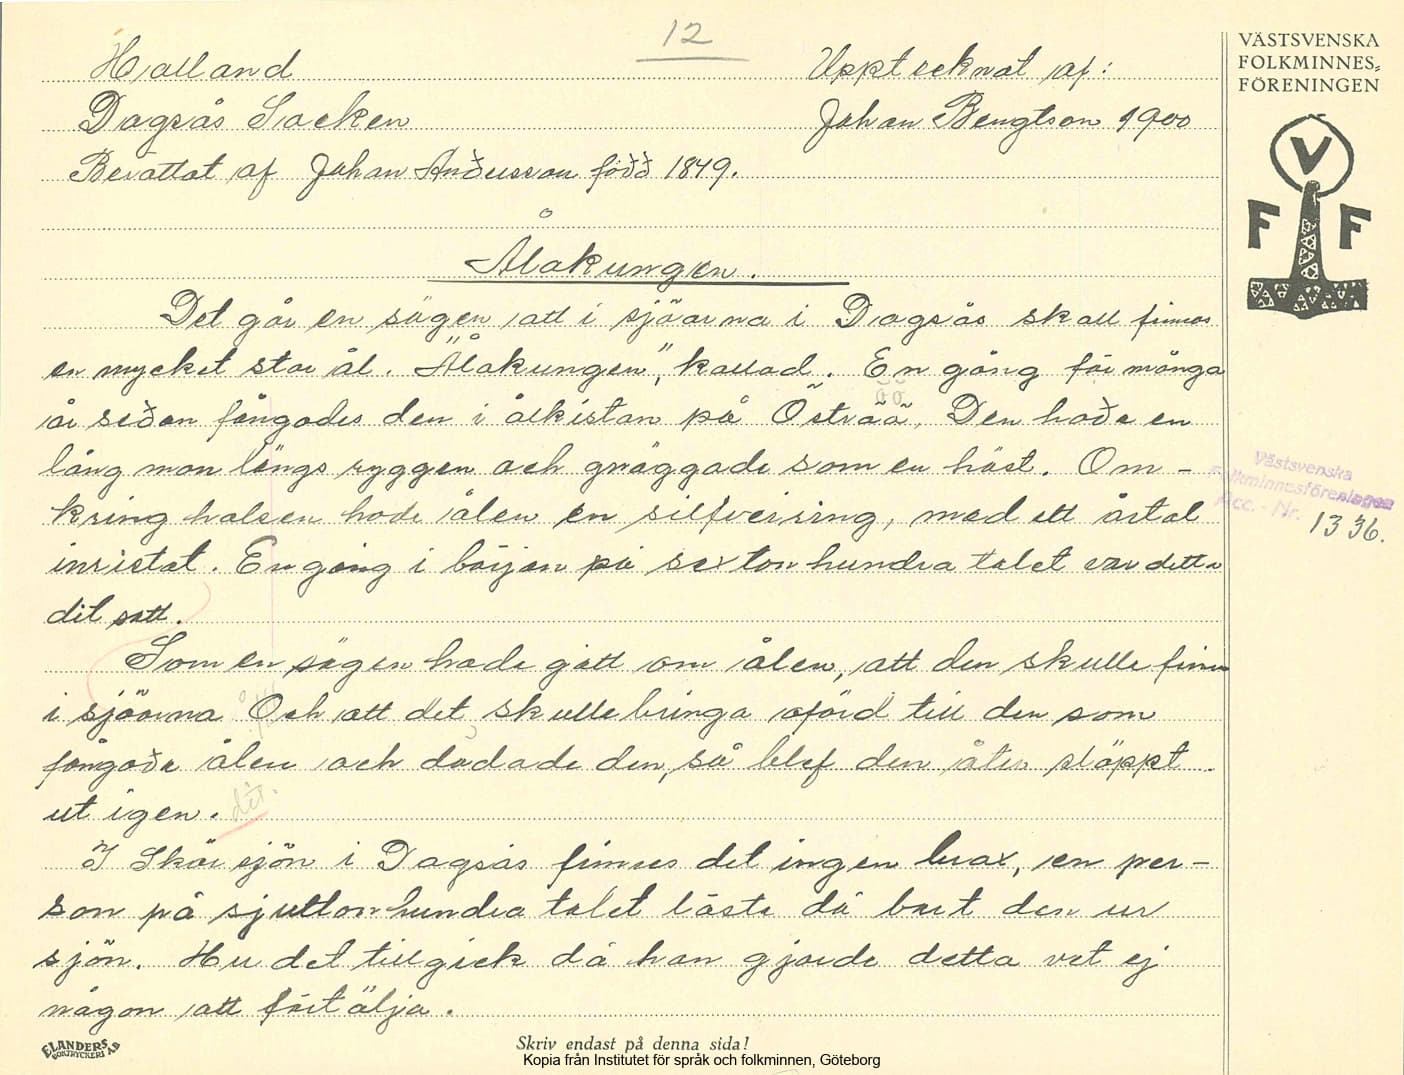 12
Halland
Upptecknat af:
Dagsås Socken
Johan Bengtson 1900
Berättat af Johan Andersson född 1849.
VÄSTSVENSKA
FOLKMINNES=
FÖRENINGEN
V
F F
Ålakungen.
Det går en sägen att i sjöarna i Dagsås skall finnas
en mycket stor ål. "Ålakungen", kallad. En gång för många
år sedan fångades den i ålkistan på Östraå, Den hade en
lång man längs ryggen och gnäggade som en häst. Om-
kring halsen hade ålen en silfverring, med ett årtal
inristat. En gång i början på sextonhundra talet var detta
dit satt.
Som en sägen hade gått om ålen, att den skulle finnas
i sjöarna Och att det skulle bringa ofärd till den som
fångade ålen och dödade den, så blef den åter släppt
ut igen. dit.
I Skärsjön i Dagsås finnes det ingen brax, en per-
son på sjuttonhundra talet läste då bort den ur
sjön. Hur det tillgick då han gjorde detta vet ej
någon att förtälja.
Västsvenska
Folkminnesföreningen
Acc. - Nr. 1336.
ELANDERS
BOKTRYCKERI AB
Skriv endast på denna sida!
Kopia från Institutet för språk och folkminnen, Göteborg